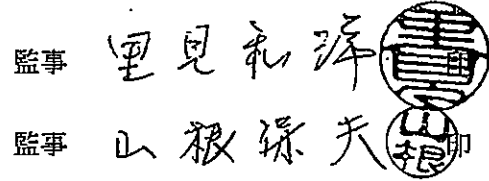 監事 里見和洋 印
監事 山根孫夫 山根 印